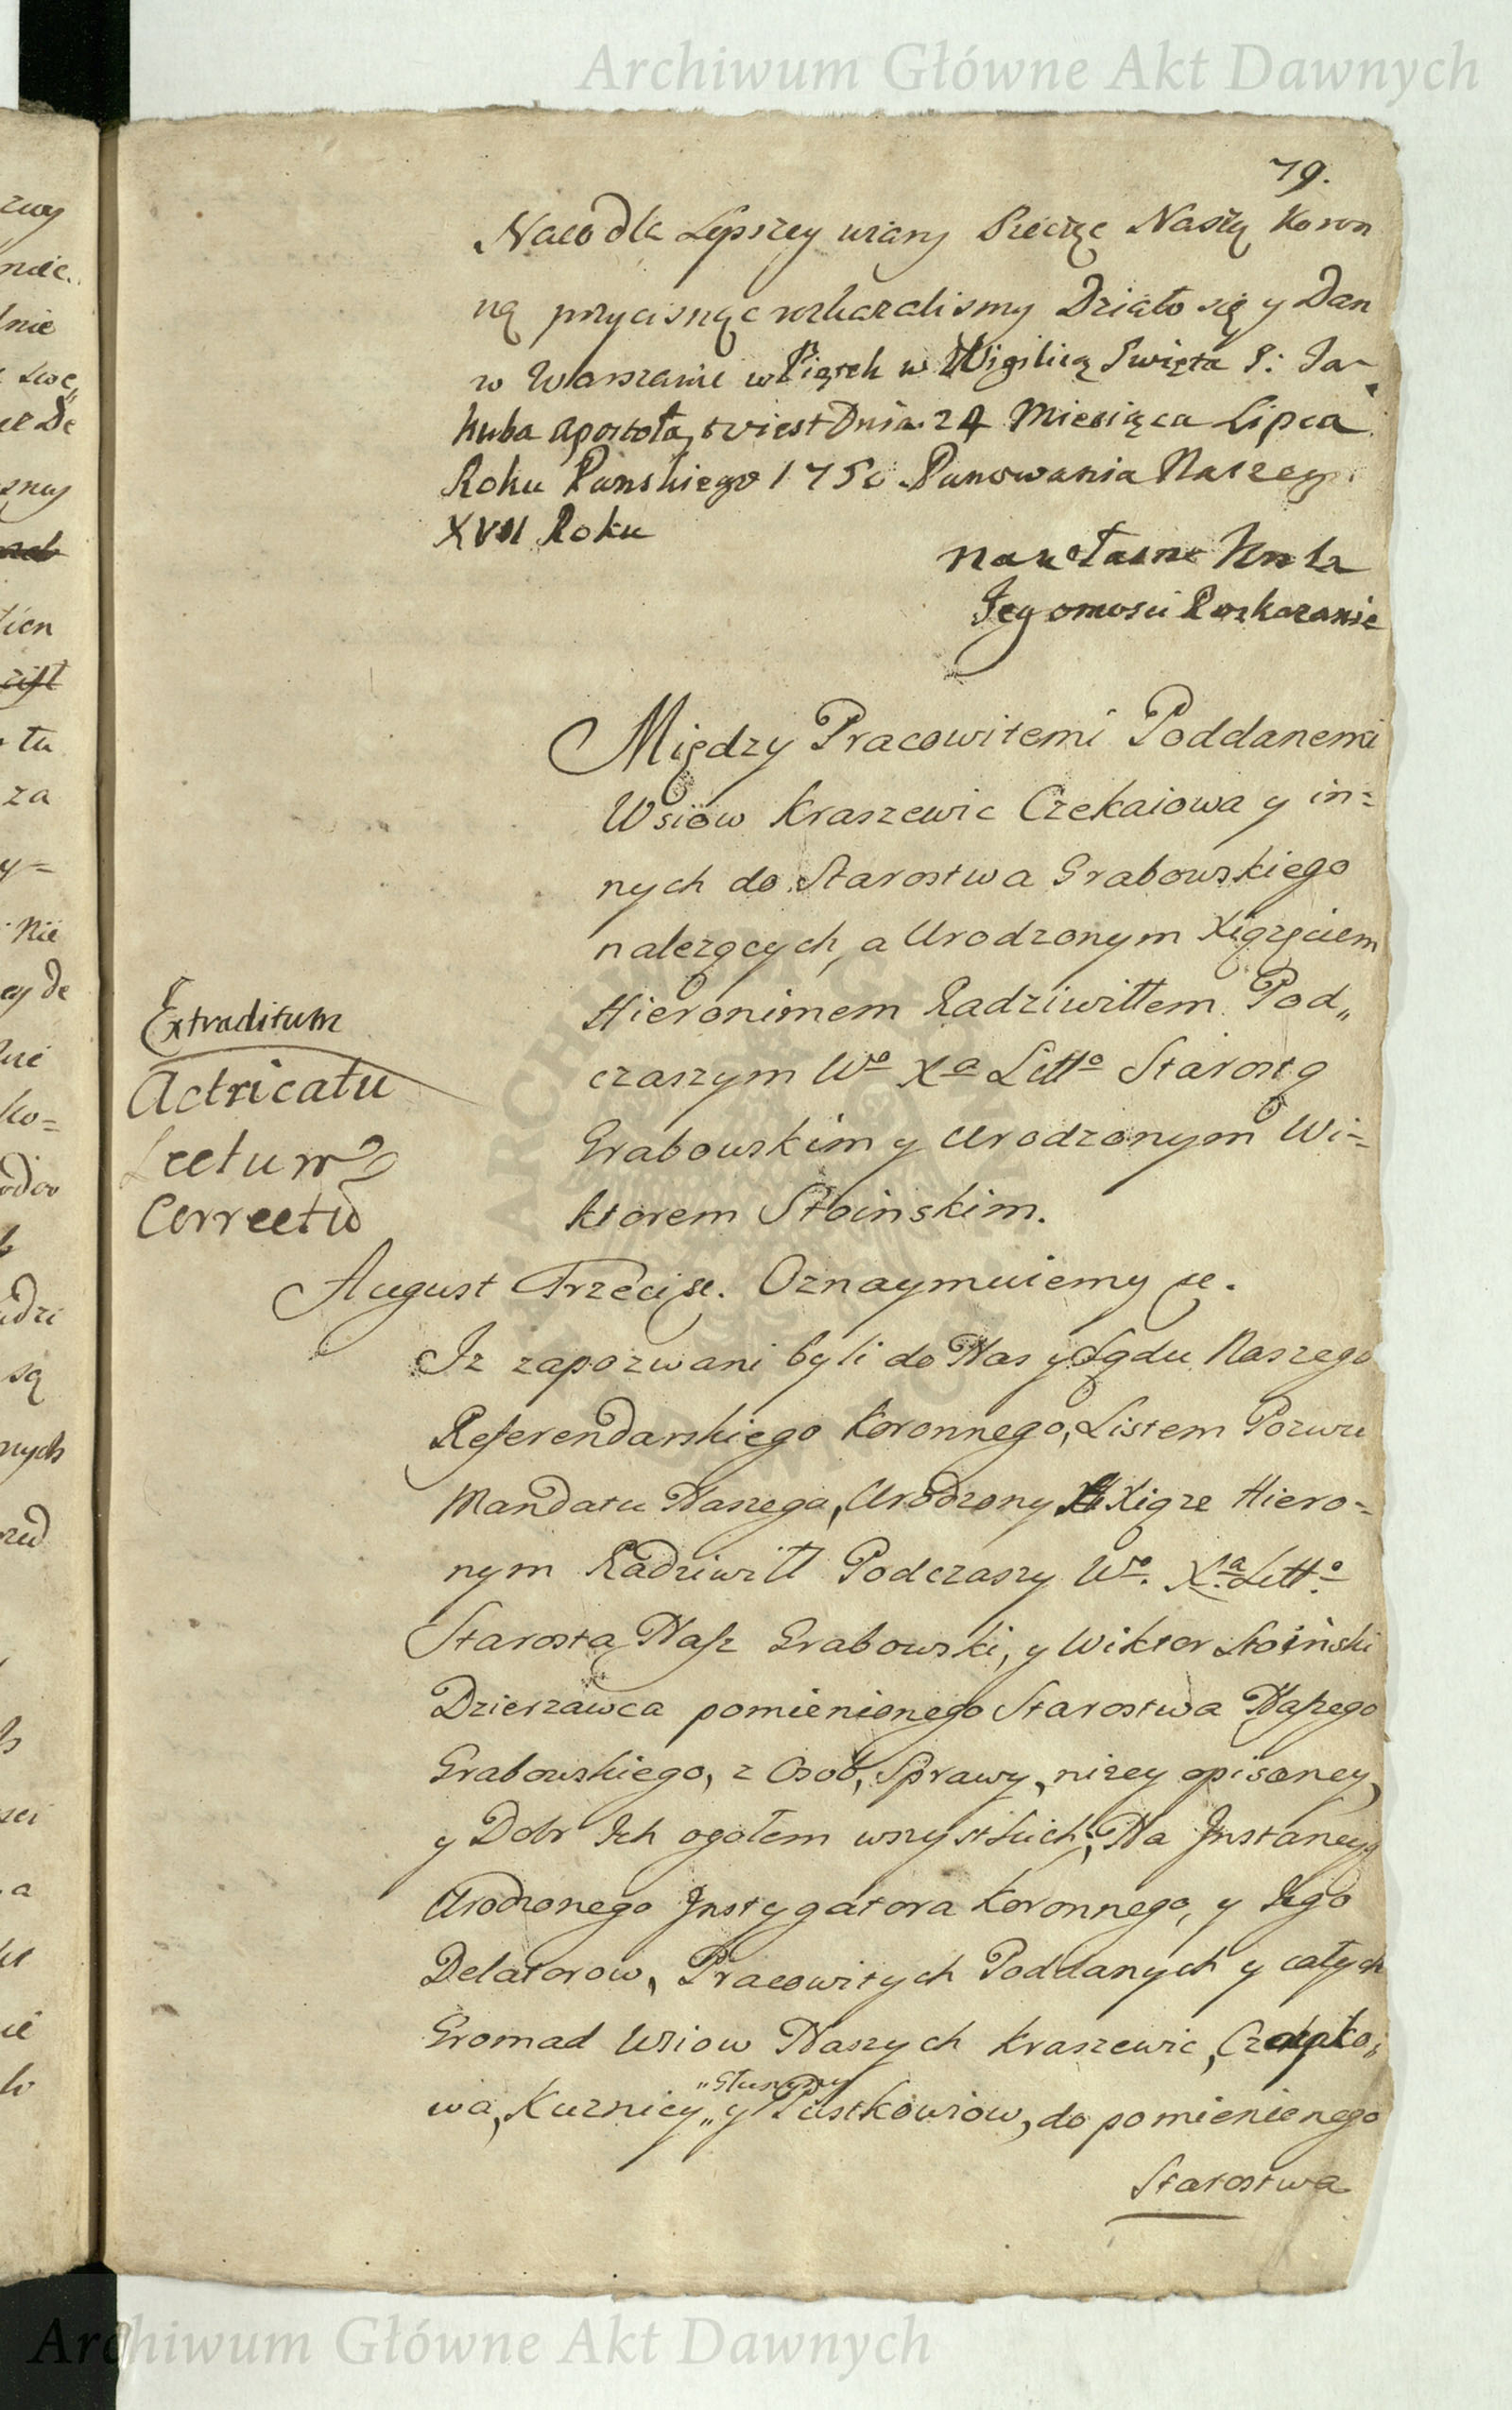 Archiwum Główne Akt Dawnych
79.
Naco dla Lepszey wiary Pieczęc Naszą Koron
ną przycisnąc rozkazalismy Działo się y Dan
w Warszawie w Piątek w Wigilią Swięta S: Ja-
kuba Apostoła, to iest Dnia 24 Miesiąca Lipca
Roku Panskiego 1750 Panowania Naszego
XVII Roku
Na własne Krola
Jegomosci Rozkazanie
Między Pracowitemi Poddanemi
Wsiow Kraszewic Czekaiowa y in=
nych do Starostwa Grabowskiego
nalezących, a Urodzonym Xiązęciem
Hieronimem Radziwiłłem Pod„
czaszym Wo Xa Litto Starostą
Grabowskim y Urodzonym Wi=
ktorem Stoinskim.
Extraditum
Actricatu
Lectum
Correctu
August Trzeci &c. Oznaymuiemy &c.
Iz zapozwani byli do Nas y Sądu Naszego
Referendarskiego Koronnego, Listem Pozwu
Mandatu Naszego, Urodzony Xiąze Hiero=
nym Radziwiłł Podczaszy Wo. Xa Litto
Starosta Nasz Grabowski, y Wiktor Stoiński
Dzierzawca pomienionego Starostwa Naszego
Grabowskiego, z Osob, Sprawy, nizey opisaney,
y Dobr Ich ogołem wszystkich; Na Instancyą
Urodzonego Instygatora Koronnego, y Jego
Delatorow, Pracowitych Poddanych y całych
Gromad Wsiow Naszych Kraszewic,
wa, Kuznicy „ y Pustkowiow, do pomienionego
Starostwa
Archiwum Główne Akt Dawnych